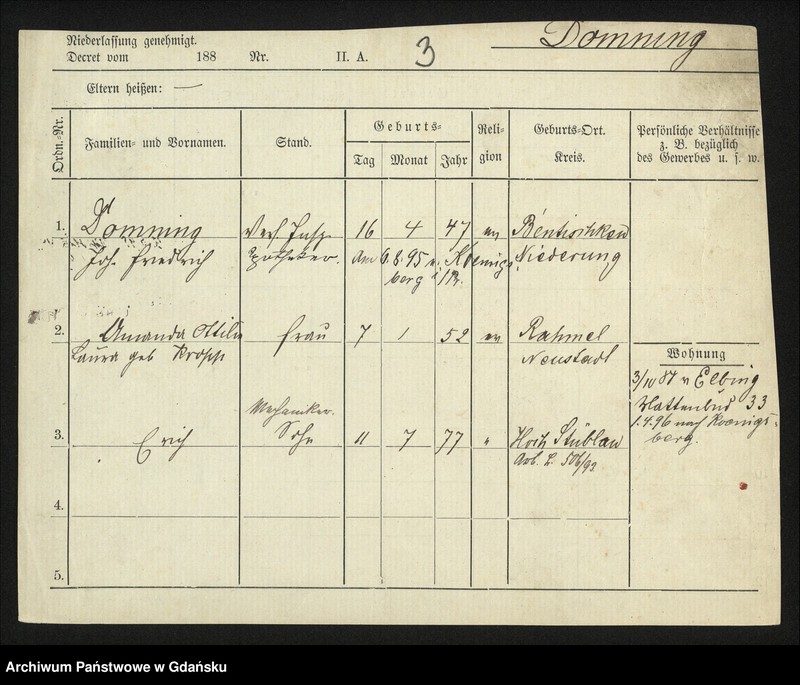 Domning
Niederlassung genehmigt.
Decret vom 188 Nr. II. A. 3
Eltern heißen: —
Ordn.-Nr.
Familien- und Vornamen.
Stand.
Geburts-
Tag Monat Jahr
Reli-
gion
Geburts-Ort.
Kreis.
Persönliche Verhältnisse
z. B. bezüglich
des Gewerbes u. s. w.
1. Domning Vers. Insp. 16 4 47 ev
Joh. Friedrich Apotheker. am 6.8.95 n. Koenigs- Niederung
berg i/Pr.
2. Amanda Ottilie Frau 7 1 52 ev Rahmel
Laura geb Neustadt
Mechaniker.
3. Erich Sohn 11 7 77 " Stüblau
506/93
4.
5.
Wohnung
3/10 87 v Elbing
33
1.4.96 nach Koenigs-
berg.
Archiwum Państwowe w Gdańsku